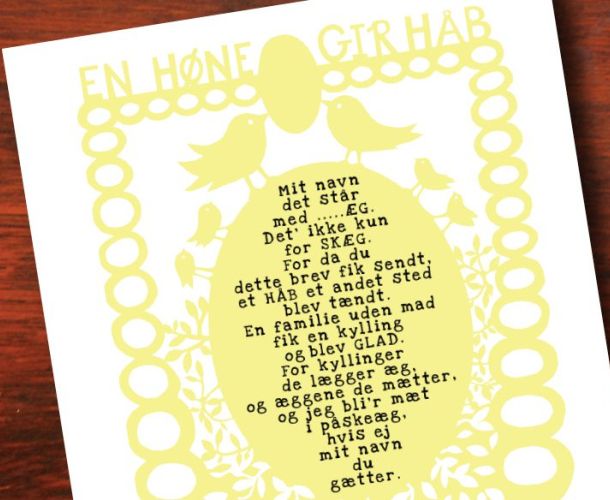 EN HØNE GIR HÅB
Mit navn
det står
med .....ÆG.
Det' ikke kun
for SKÆG.
For da du
dette brev fik sendt,
et HÅB et andet sted
blev tændt.
En familie uden mad
fik en kylling
og blev GLAD.
For kyllinger
de lægger æg,
og æggene de mætter,
og jeg bli'r mæt
i påskeæg,
hvis ej
mit navn
du
gætter.